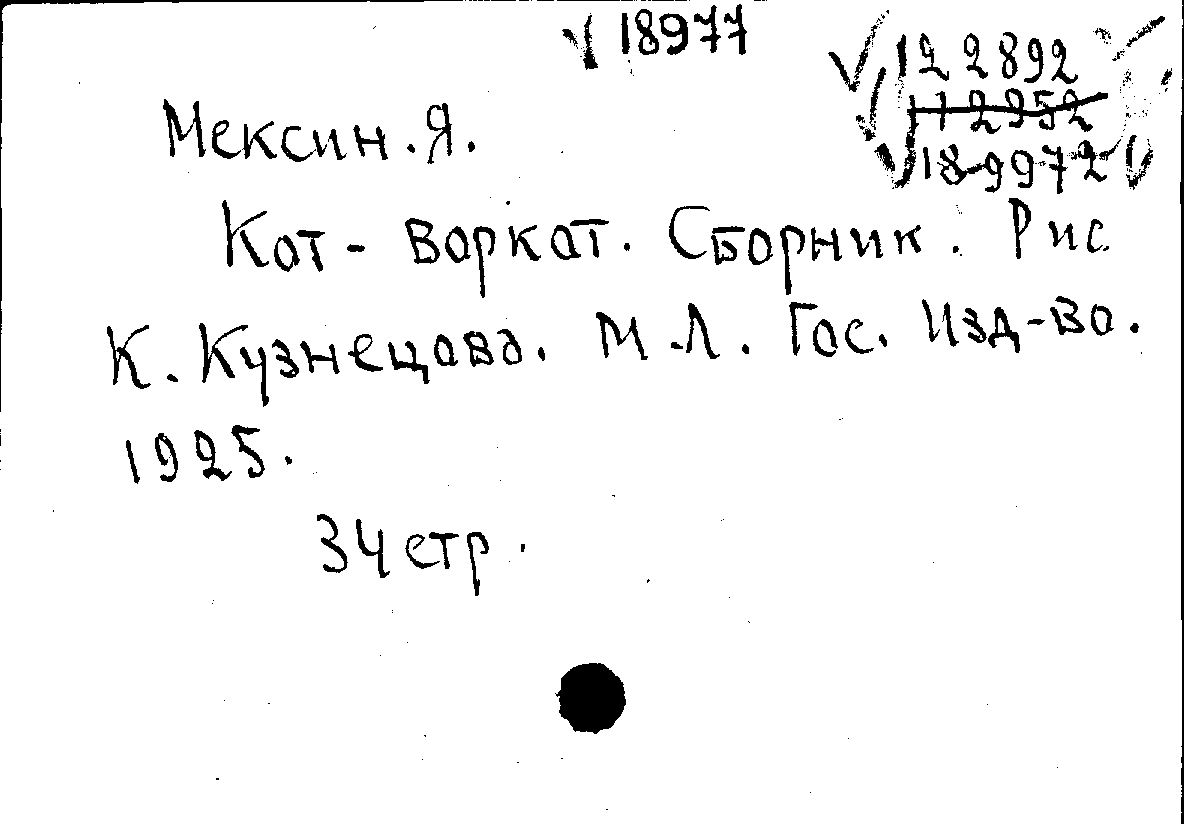 18977
122892
112952
18-9972
Мексин.Я.
Кот - Воркот. Сборник. Рис
К. Кузнецова. М.-Л. Гос. Изд-во.
1925.
34 стр.